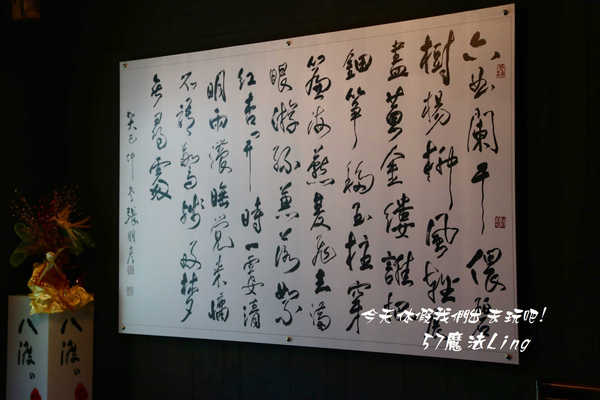 六曲闌干偎碧
樹楊柳風輕展
盡黃金縷誰把
鈿箏移玉柱穿
簾海燕雙飛去滿
眼游絲兼落絮
紅杏開時一霎清
明雨濃睡覺來慵
不語驚殘好夢
無尋處
癸巳仲冬張明
八渡の
八渡の
今天休假我們出去玩吧!
57魔法Ling